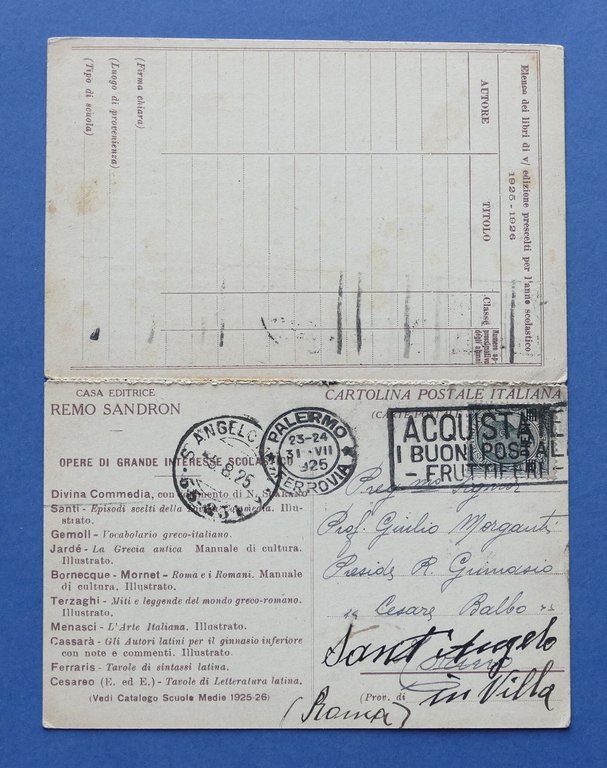 Elenco dei libri di v/ edizione prescelti per l'anno scolastico
1925-1926
AUTORE
TITOLO
Classe
Numero ap-
prossimativo
degli alunni
(Firma chiara)
(Luogo di provenienza)
(Tipo di scuola)
CASA EDITRICE
REMO SANDRON
OPERE DI GRANDE INTERESSE SCOLASTICO
Divina Commedia, con commento di N. SCARANO
Santi - Episodi scelti della Divina Commedia. Illu-
strato.
Gemoll - Vocabolario greco-italiano.
Jardé - La Grecia antica Manuale di cultura.
Illustrato.
Bornecque - Mornet - Roma e i Romani. Manuale
di cultura. Illustrato.
Terzaghi - Miti e leggende del mondo greco-romano.
Illustrato.
Menasci - L'Arte Italiana. Illustrato.
Cassarà - Gli Autori latini per il ginnasio inferiore
con note e commenti. Illustrato.
Ferraris - Tavole di sintassi latina.
Cesareo (E. ed E.) - Tavole di Letteratura latina.
(Vedi Catalogo Scuole Medie 1925-26)
S. ANGELO
8.25
PALERMO
23-24
31 · VII
925
FERROVIA
CARTOLINA POSTALE ITALIANA
ACQUISTATE
I BUONI POSTALI
- FRUTTIFERI -
Preg mo Signor
Prof. Giulio Morganti
Preside R. Ginnasio
"Cesare Balbo"
Sant'Angelo
(Prov. di
in Villa
(Roma)